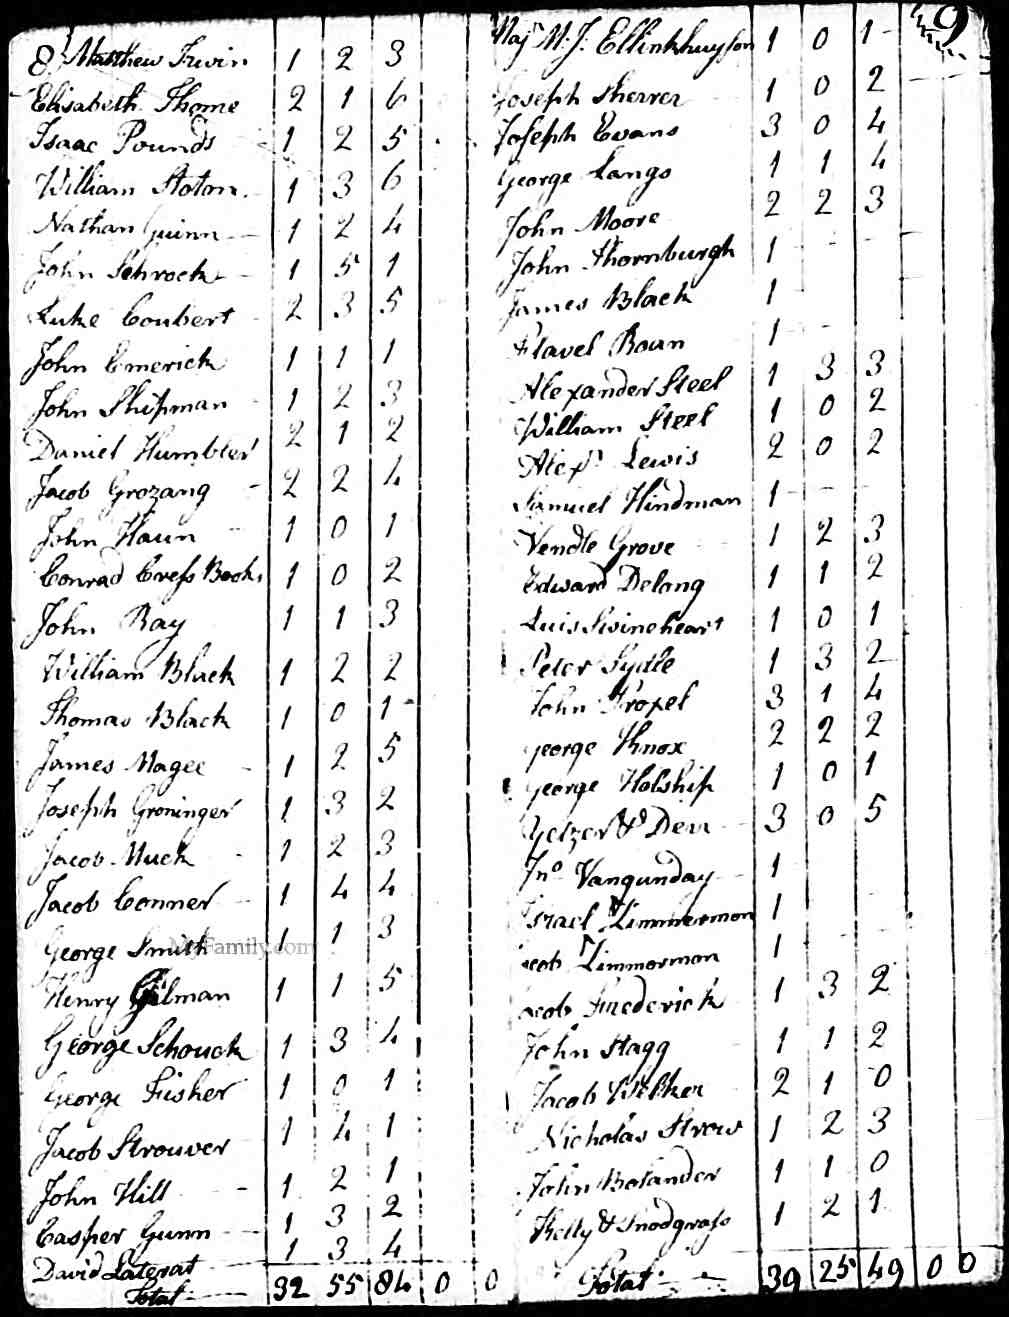 8 Matthew Irwin 1 2 3
Elisabeth Thome 2 1 6
Isaac Pounds 1 2 5
William Stoton 1 3 6
Nathan Guinn 1 2 4
John Schrock 1 5 1
Luke Coubert 2 3 5
John Emerick 1 1 1
John Shipman 1 2 3
Daniel Humbler 2 1 2
Jacob Grozang 2 2 4
John Haun 1 0 1
Conrad 1 0 2
John Ray 1 1 3
William Black 1 2 2
Thomas Black 1 0 1
James Magee 1 2 5
Joseph Groninger 1 3 2
Jacob Muck 1 2 3
Jacob Conner 1 4 4
George Smith 1 1 3
MyFamily.com
Henry Gilman 1 1 5
George Schouck 1 3 4
George Fisher 1 0 1
Jacob Strouver 1 4 1
John Hill 1 2 1
Casper Gunn 1 3 2
David Laterat 1 3 4
Total 32 55 84 0 0
9
Maj M. J. Ellinkhuyson 1 0 1
Joseph Sherrer 1 0 2
Joseph Evans 3 0 4
George Langs 1 1 4
John Moore 2 2 3
John Thornburgh 1
James Black 1
Flavel Roan 1
Alexander Steel 1 3 3
William Steel 1 0 2
Alexr. Lewis 2 0 2
Samuel Hindman 1
Vendle Grove 1 2 3
Edward Delong 1 1 2
Luis Swineheart 1 0 1
Peter Sydle 1 3 2
John Troxel 3 1 4
George Knox 2 2 2
George Holship 1 0 1
Yetzer & Derr 3 0 5
Jno Vangunday 1
Israel Zimmermon 1
acob Zimmorman 1
acob Frederick 1 3 2
John Stagg 1 1 2
Jacob Welker 2 1 0
Nicholas Strow 1 2 3
John Bolander 1 1 0
Kelly & Snodgrass 1 2 1
Total 39 25 49 0 0